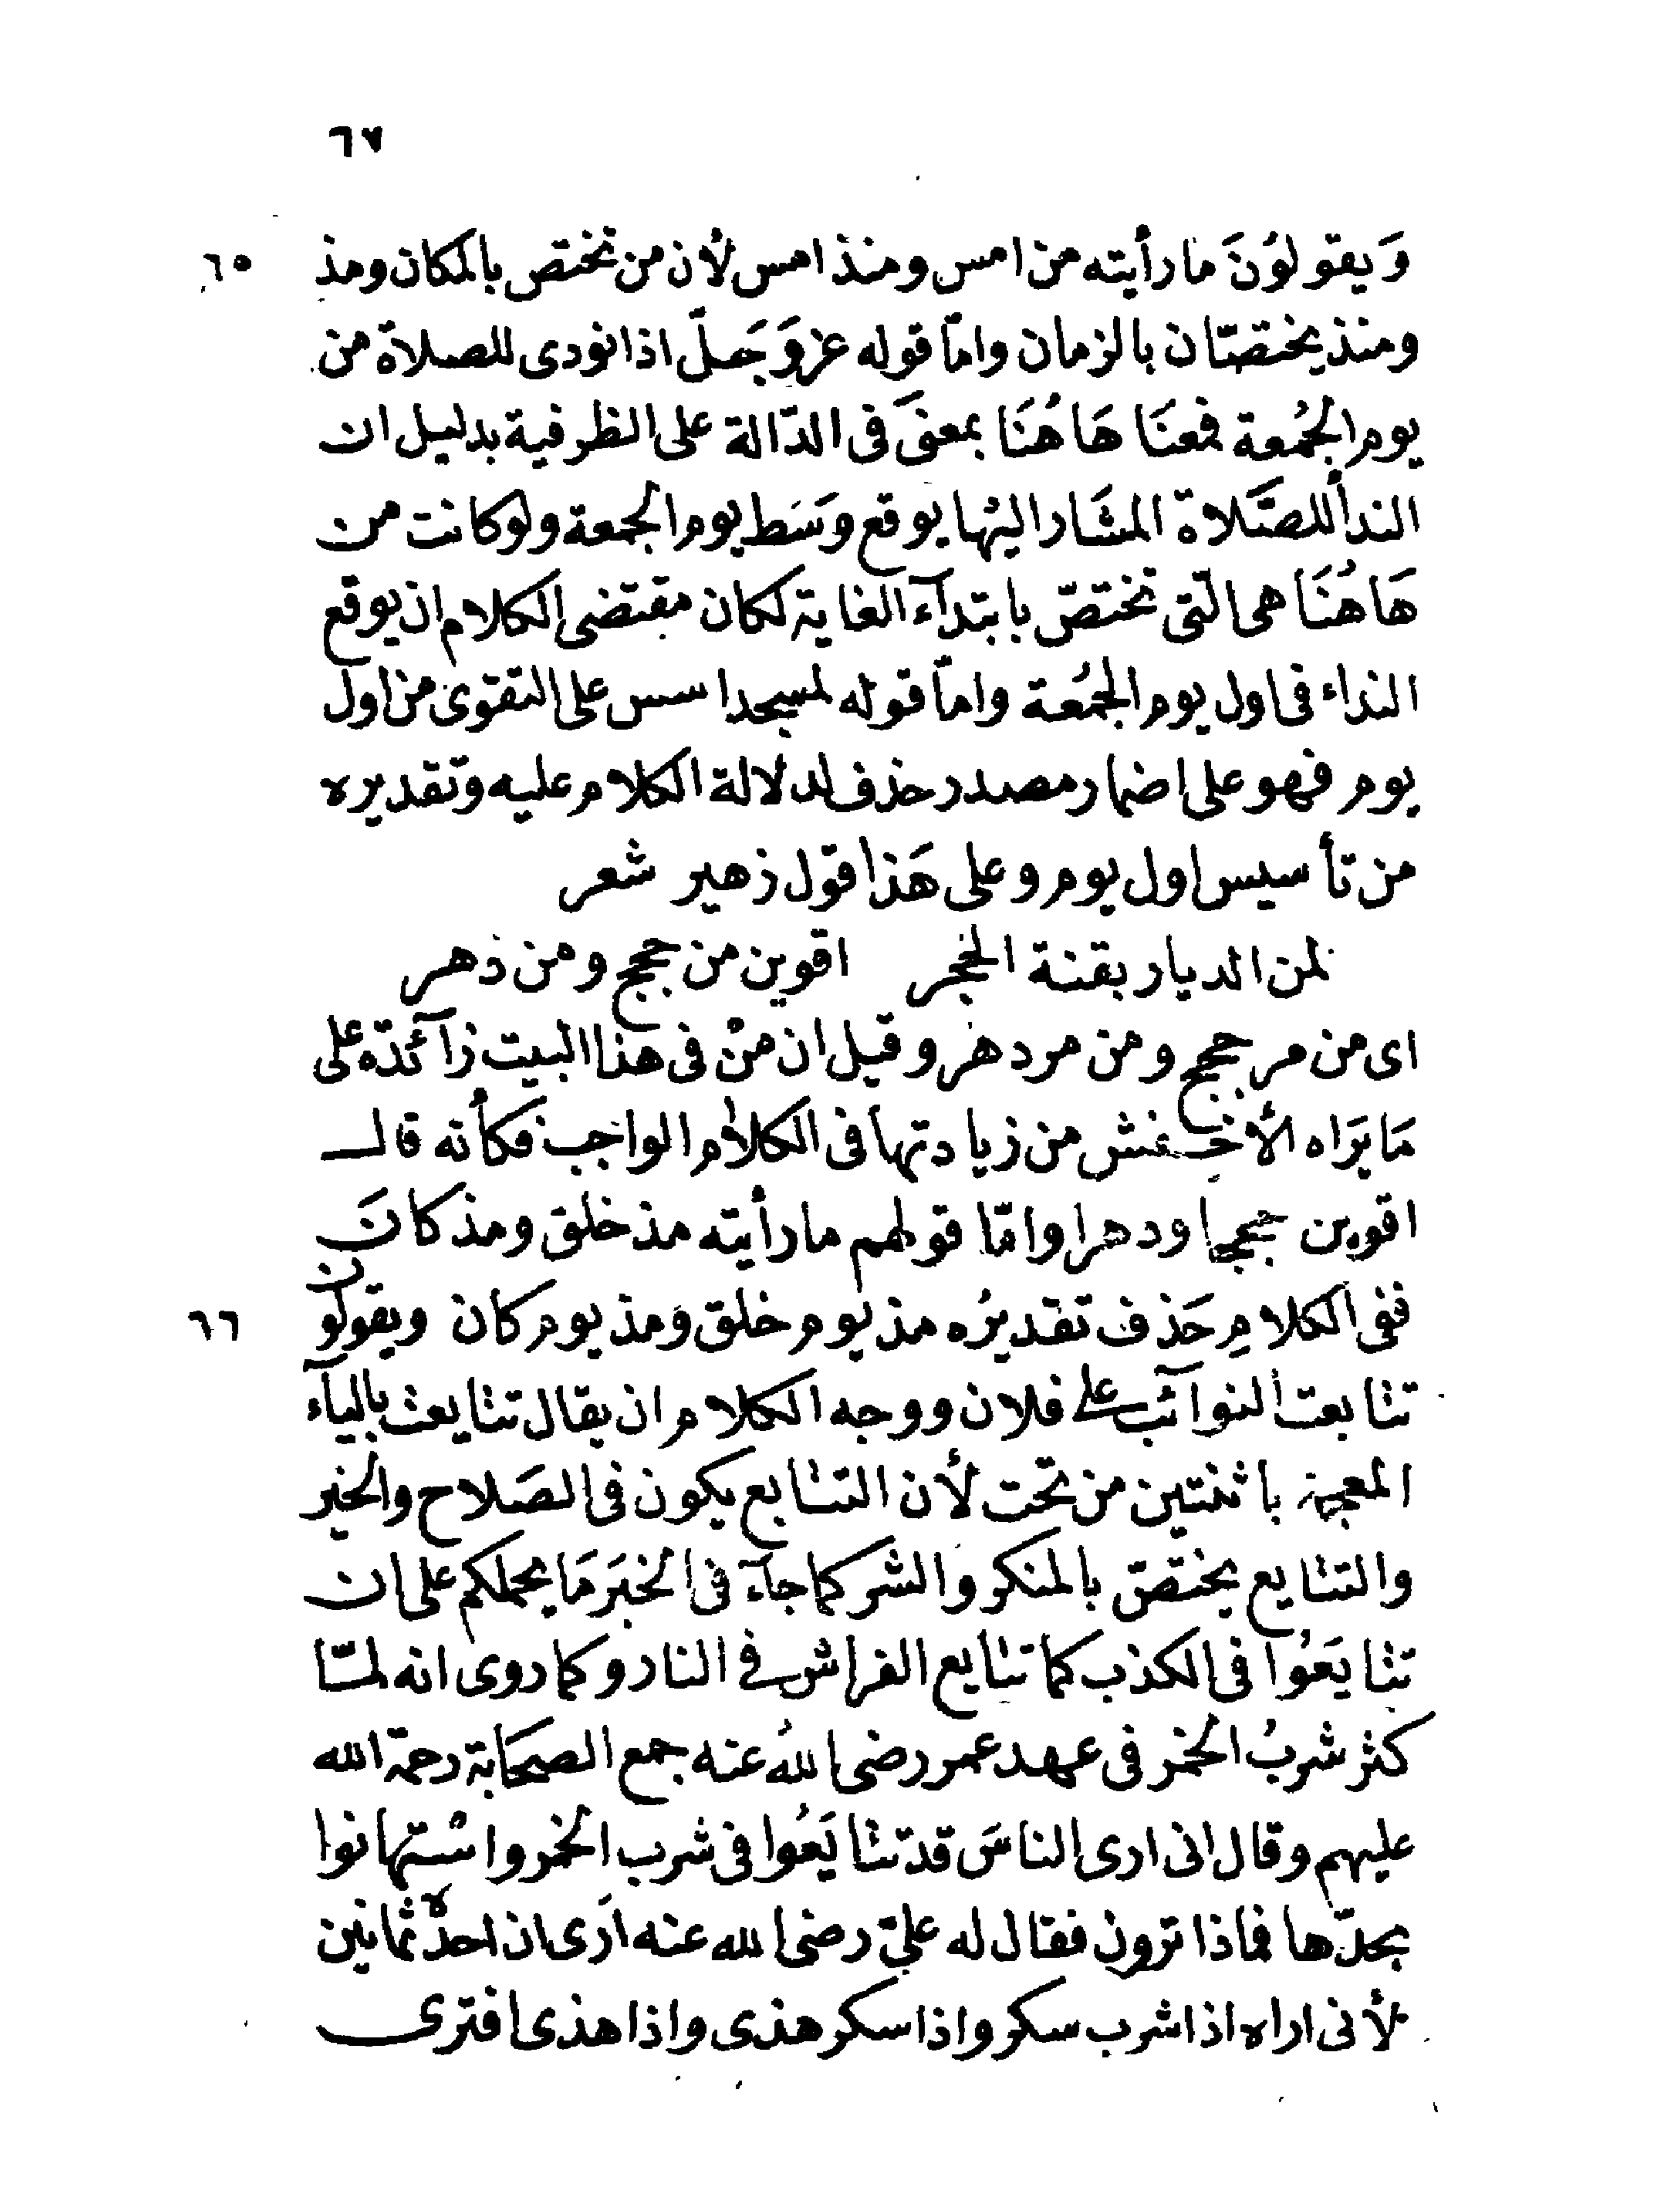 ٦٧
وَيقولوُنَ ما رأيته من امس ومنذ امس لأن من تختص بالمكان ومذ ٦٥
ومنذ يختصّان بالزمان وامّا قوله عز وَجَلّ اذا نودى للصلاة من
يوم الجُمعة فمعنَا هَا هُنَا بمعنَى فى الدّالة على الظرفية بدليل ان
الندأ للصَّلاة المشَار اليها يوقع وسَط يوم الجمعة ولو كانت من
هَا هُنَا هى الّتى تختصّ بابتدآء الغاية لكان مقتضى الكلام ان يوقع
النداء فى اول يوم الجمُعَة وامّا قوله لمسجد اسس على التقوى من اول
يوم فهو على اضمار مصدر حذف لدلالة الكلام عليه وتقديره
من تأسيس اول يوم وعلى هَذا قول زهير شعر
لمن الديار بقنة الحجر اقوين من حجج ومن دهر
اى من مر حجج ومن مر دهر وقيل ان مِنْ فى هذا البيت زآئدّه على
مَا يَرَاه الأخفش من زيادتها فى الكلام الواجب فكأنه قال
اقوين حججا ودهرا وامّا قولهم ما رأيته مذ خلق ومذ كانَ
ففى الكلامِ حَذف تقديرُه مذ يوم خلق ومذ يوم كان ويقولون ٦٦
تتابعت النوآئب على فلان ووجه الكلام ان يقال تتايعت باليآء
المعجمة باثنتين من تحت لأن التتابع يكون فى الصَلاح والخير
والتتايع يختصّ بالمنكر والشر كما جآء فى الخبَر مَا يحملكم على ان
تتايَعُوا فى الكذب كما تتايع الفراش فى النار وكما روى انه لمّا
كثر شربُ الخمر فى عهد عمر رضى اللهُ عنه جمع الصحَابة رحمة الله
عليهم وقال انى ارى الناسَ قد تتايَعُوا فى شرب الخمر واسْتهانوا
بحدّها فماذا ترون فقال له علىّ رضى الله عنه ارَى ان احدّه ثمانين
لأنى اراه اذا شرب سكر واذا سكر هذى واذا هذى افترى